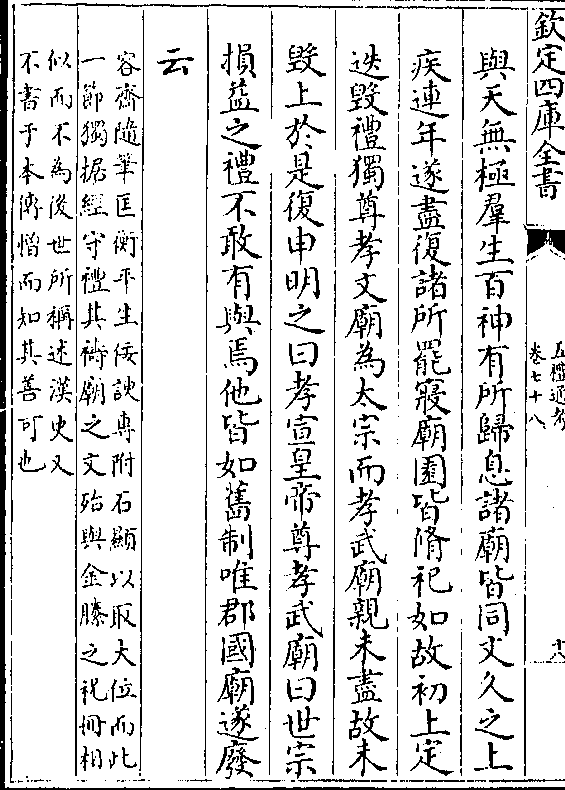 欽定四庫全書
五禮通考
卷七十八
十八
與天無極羣生百神有所歸息諸廟皆同文久之上
疾連年遂盡復諸所罷寢廟園皆脩祀如故初上定
迭毀禮獨尊孝文廟為太宗而孝武廟親未盡故未
毀上於是復申明之曰孝宣皇帝尊孝武廟曰世宗
損益之禮不敢有與焉他皆如舊制唯郡國廟遂廢
云
容齋隨筆匡衡平生佞諛專附石顯以取大位而此
一節獨據經守禮其禱廟之文殆與金縢之祝冊相
似而不為後世所稱述漢史又
不書于本傳憎而知其善可也